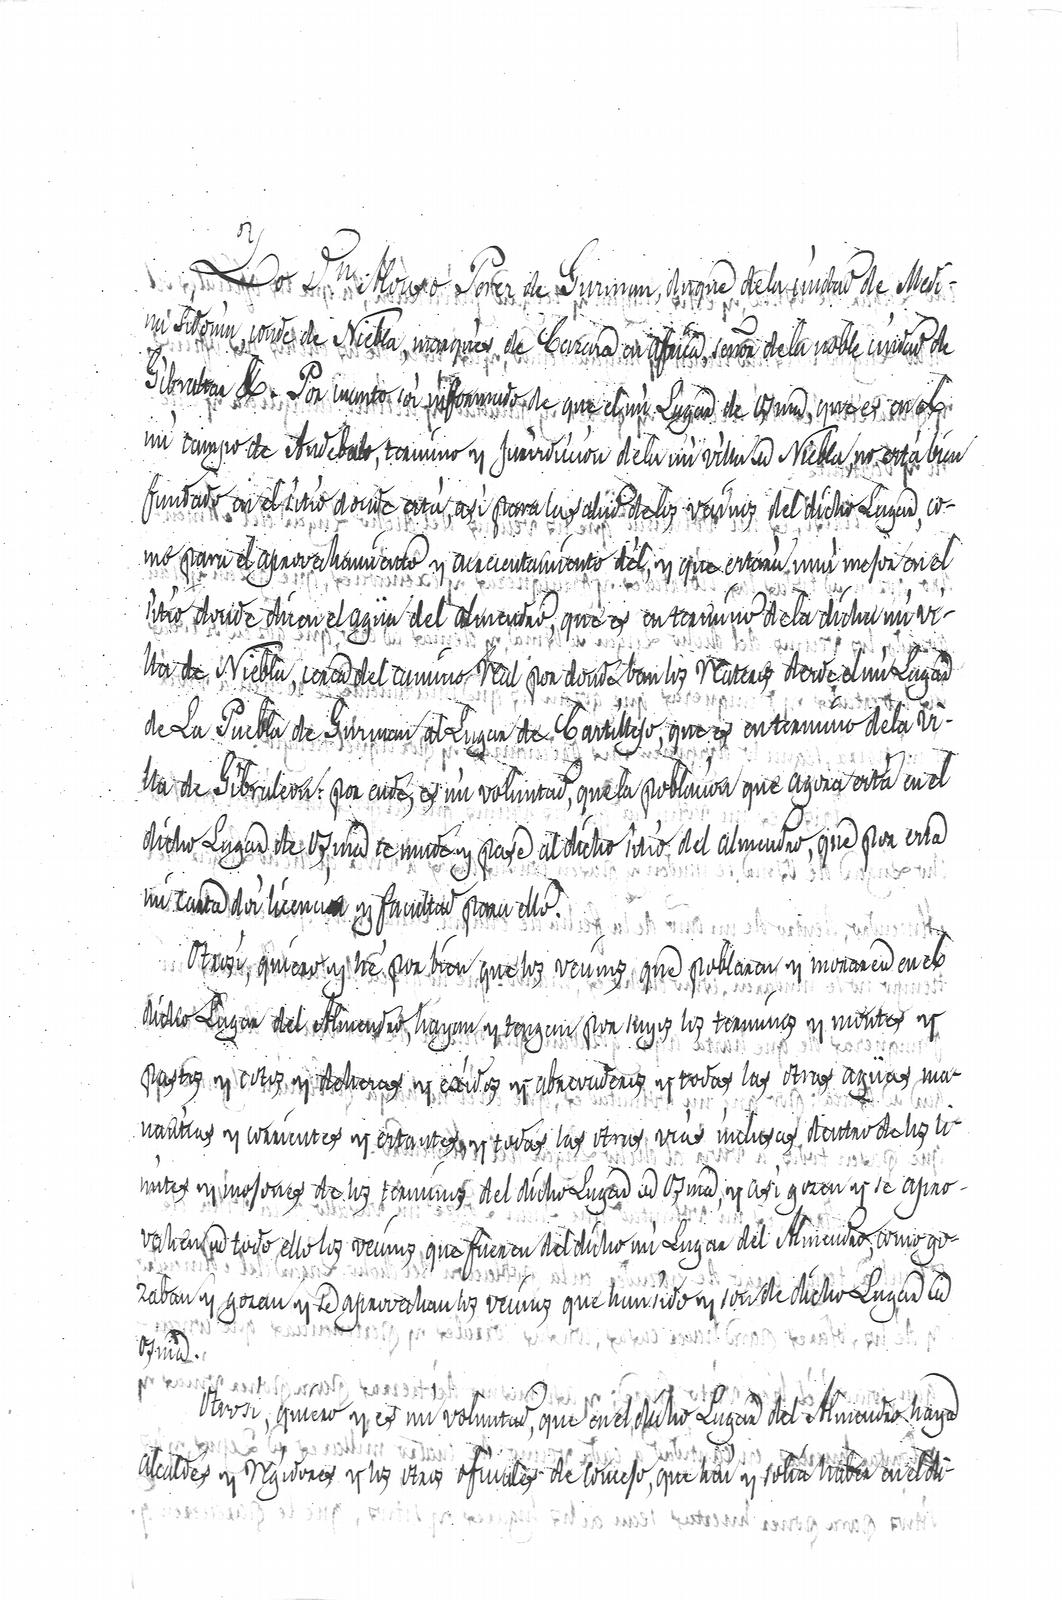 Yo Dn. Alonso Perez de Guzman, duque de la ciudad de Medi-
na Sidonia, conde de Niebla, marqués de Cazaza en Africa, señor de la noble ciudad de
Gibraltar &. Por cuanto soi informado de que el mi Lugar de Osma, que es en el
mi campo de Andebalo, termino y jurisdicion de la mi villa de Niebla, no está bien
fundado en el sitio donde está, asi para la salud de los vecinos del dicho Lugar, co-
mo para el aprovechamiento y acrecentamiento dél, y que estaria mui mejor en el
sitio donde dicen el agüa del Almendro, que es en termino de la dicha mi vi-
lla de Niebla, cerca del camino Real por donde ban los Materos desde el mi Lugar
de La Puebla de Guzman al Lugar de Castillejo, que es en termino de la vi-
lla de Gibraleon: por ende, es mi voluntad, que la poblacion que agora está en el
dicho Lugar de Osma se mude y pase al dicho sitio del Almendro, que por esta
mi carta doi licencia y facultad para ello.
Otrosi, quiero y hé por bien que los vecinos que poblaren y moraren en el
dicho Lugar del Almendro, hayan y tengan por suyos los terminos y montes y
pastos y cotos y dehesas y exidos y abrevaderos y todas las otras agüas ma-
nantias y corrientes y estantes, y todas las otras vias inclusas dentro de los li-
mites y mojones de los terminos del dicho Lugar de Osma, y asi gozen y se apro-
vechen de todo ello los vecinos que fueren del dicho mi Lugar del Almendro, como go-
zaban y gozan y se aprovechan los vecinos que han sido y son de dicho Lugar de
Osma.
Otrosi, quiero y es mi voluntad, que en el dicho Lugar del Almendro haya
alcaldes y Regidores y los otros oficiales de Concejo, que hai y solia haber en el di-